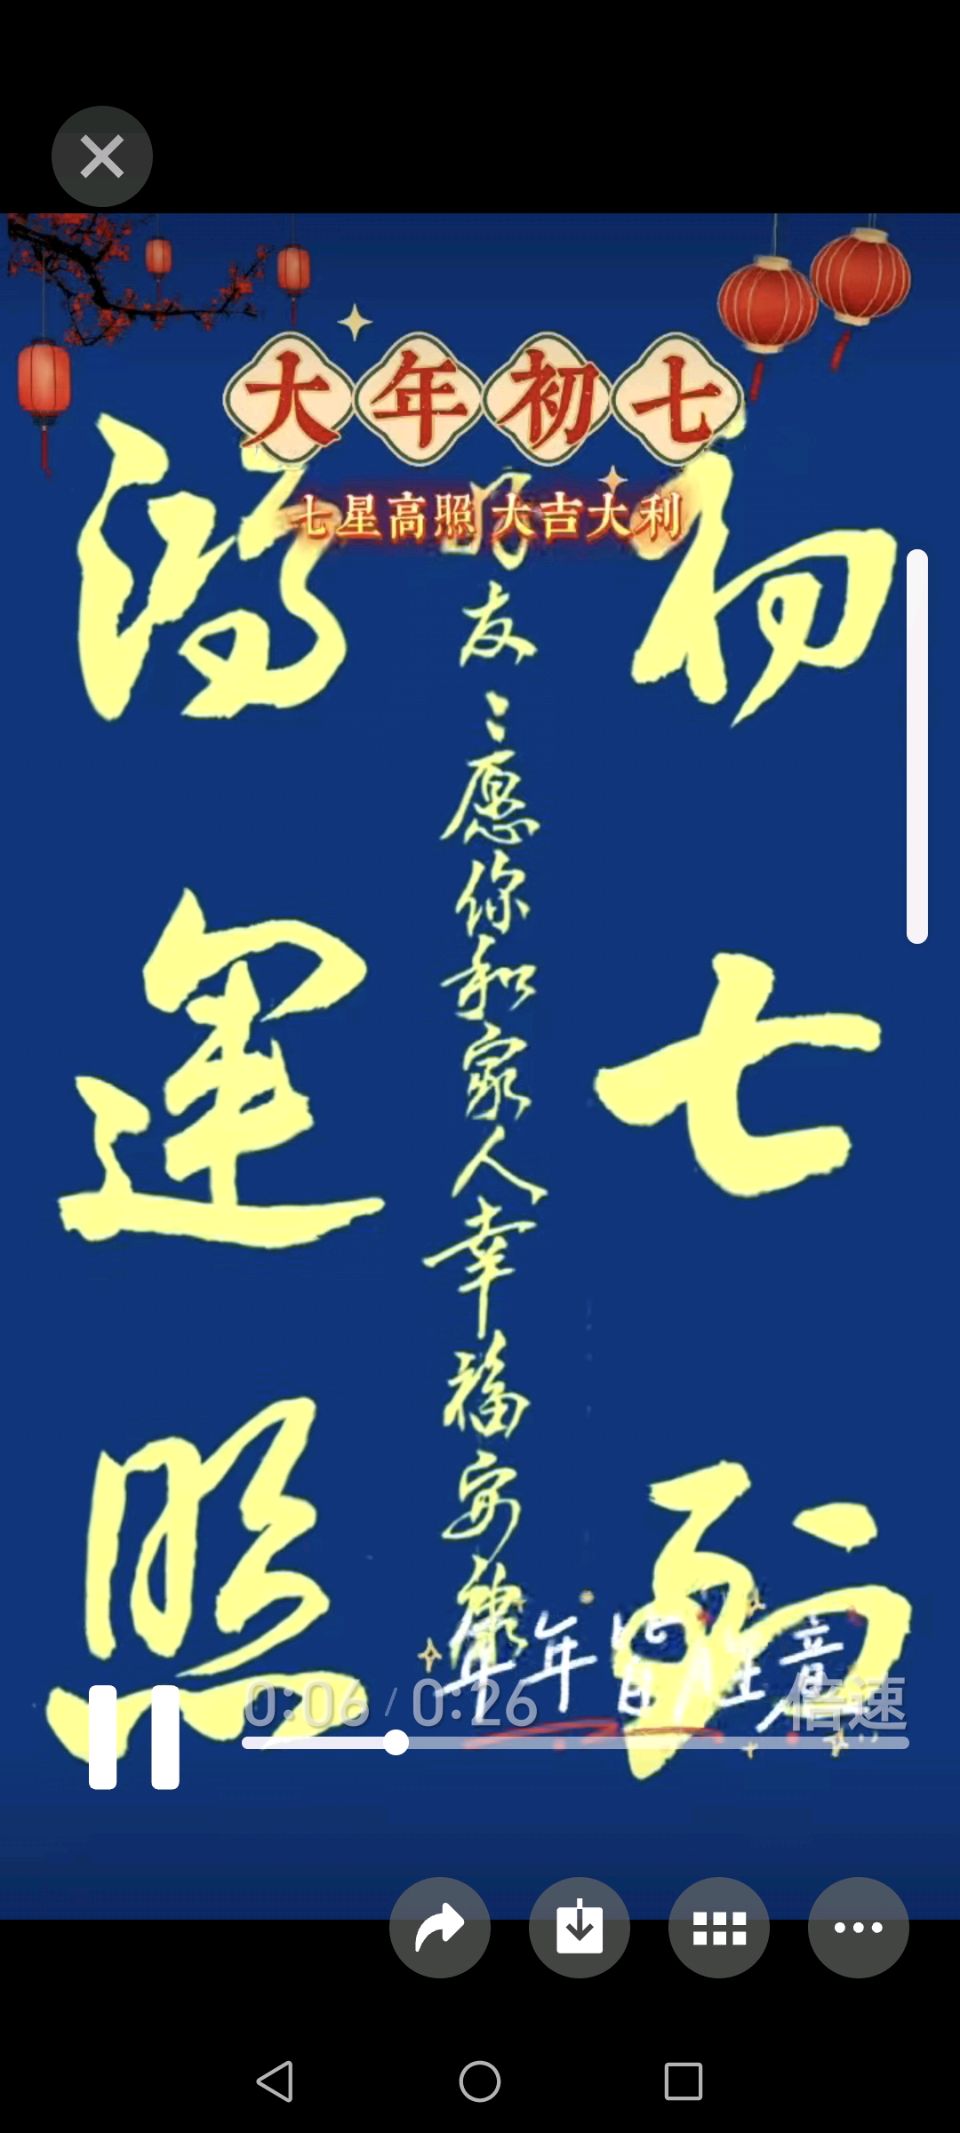 大年初七
七星高照 大吉大利
初七到
朋友：愿你和家人幸福安康
鸿运照
年年皆胜意
0:06 / 0:26
倍速